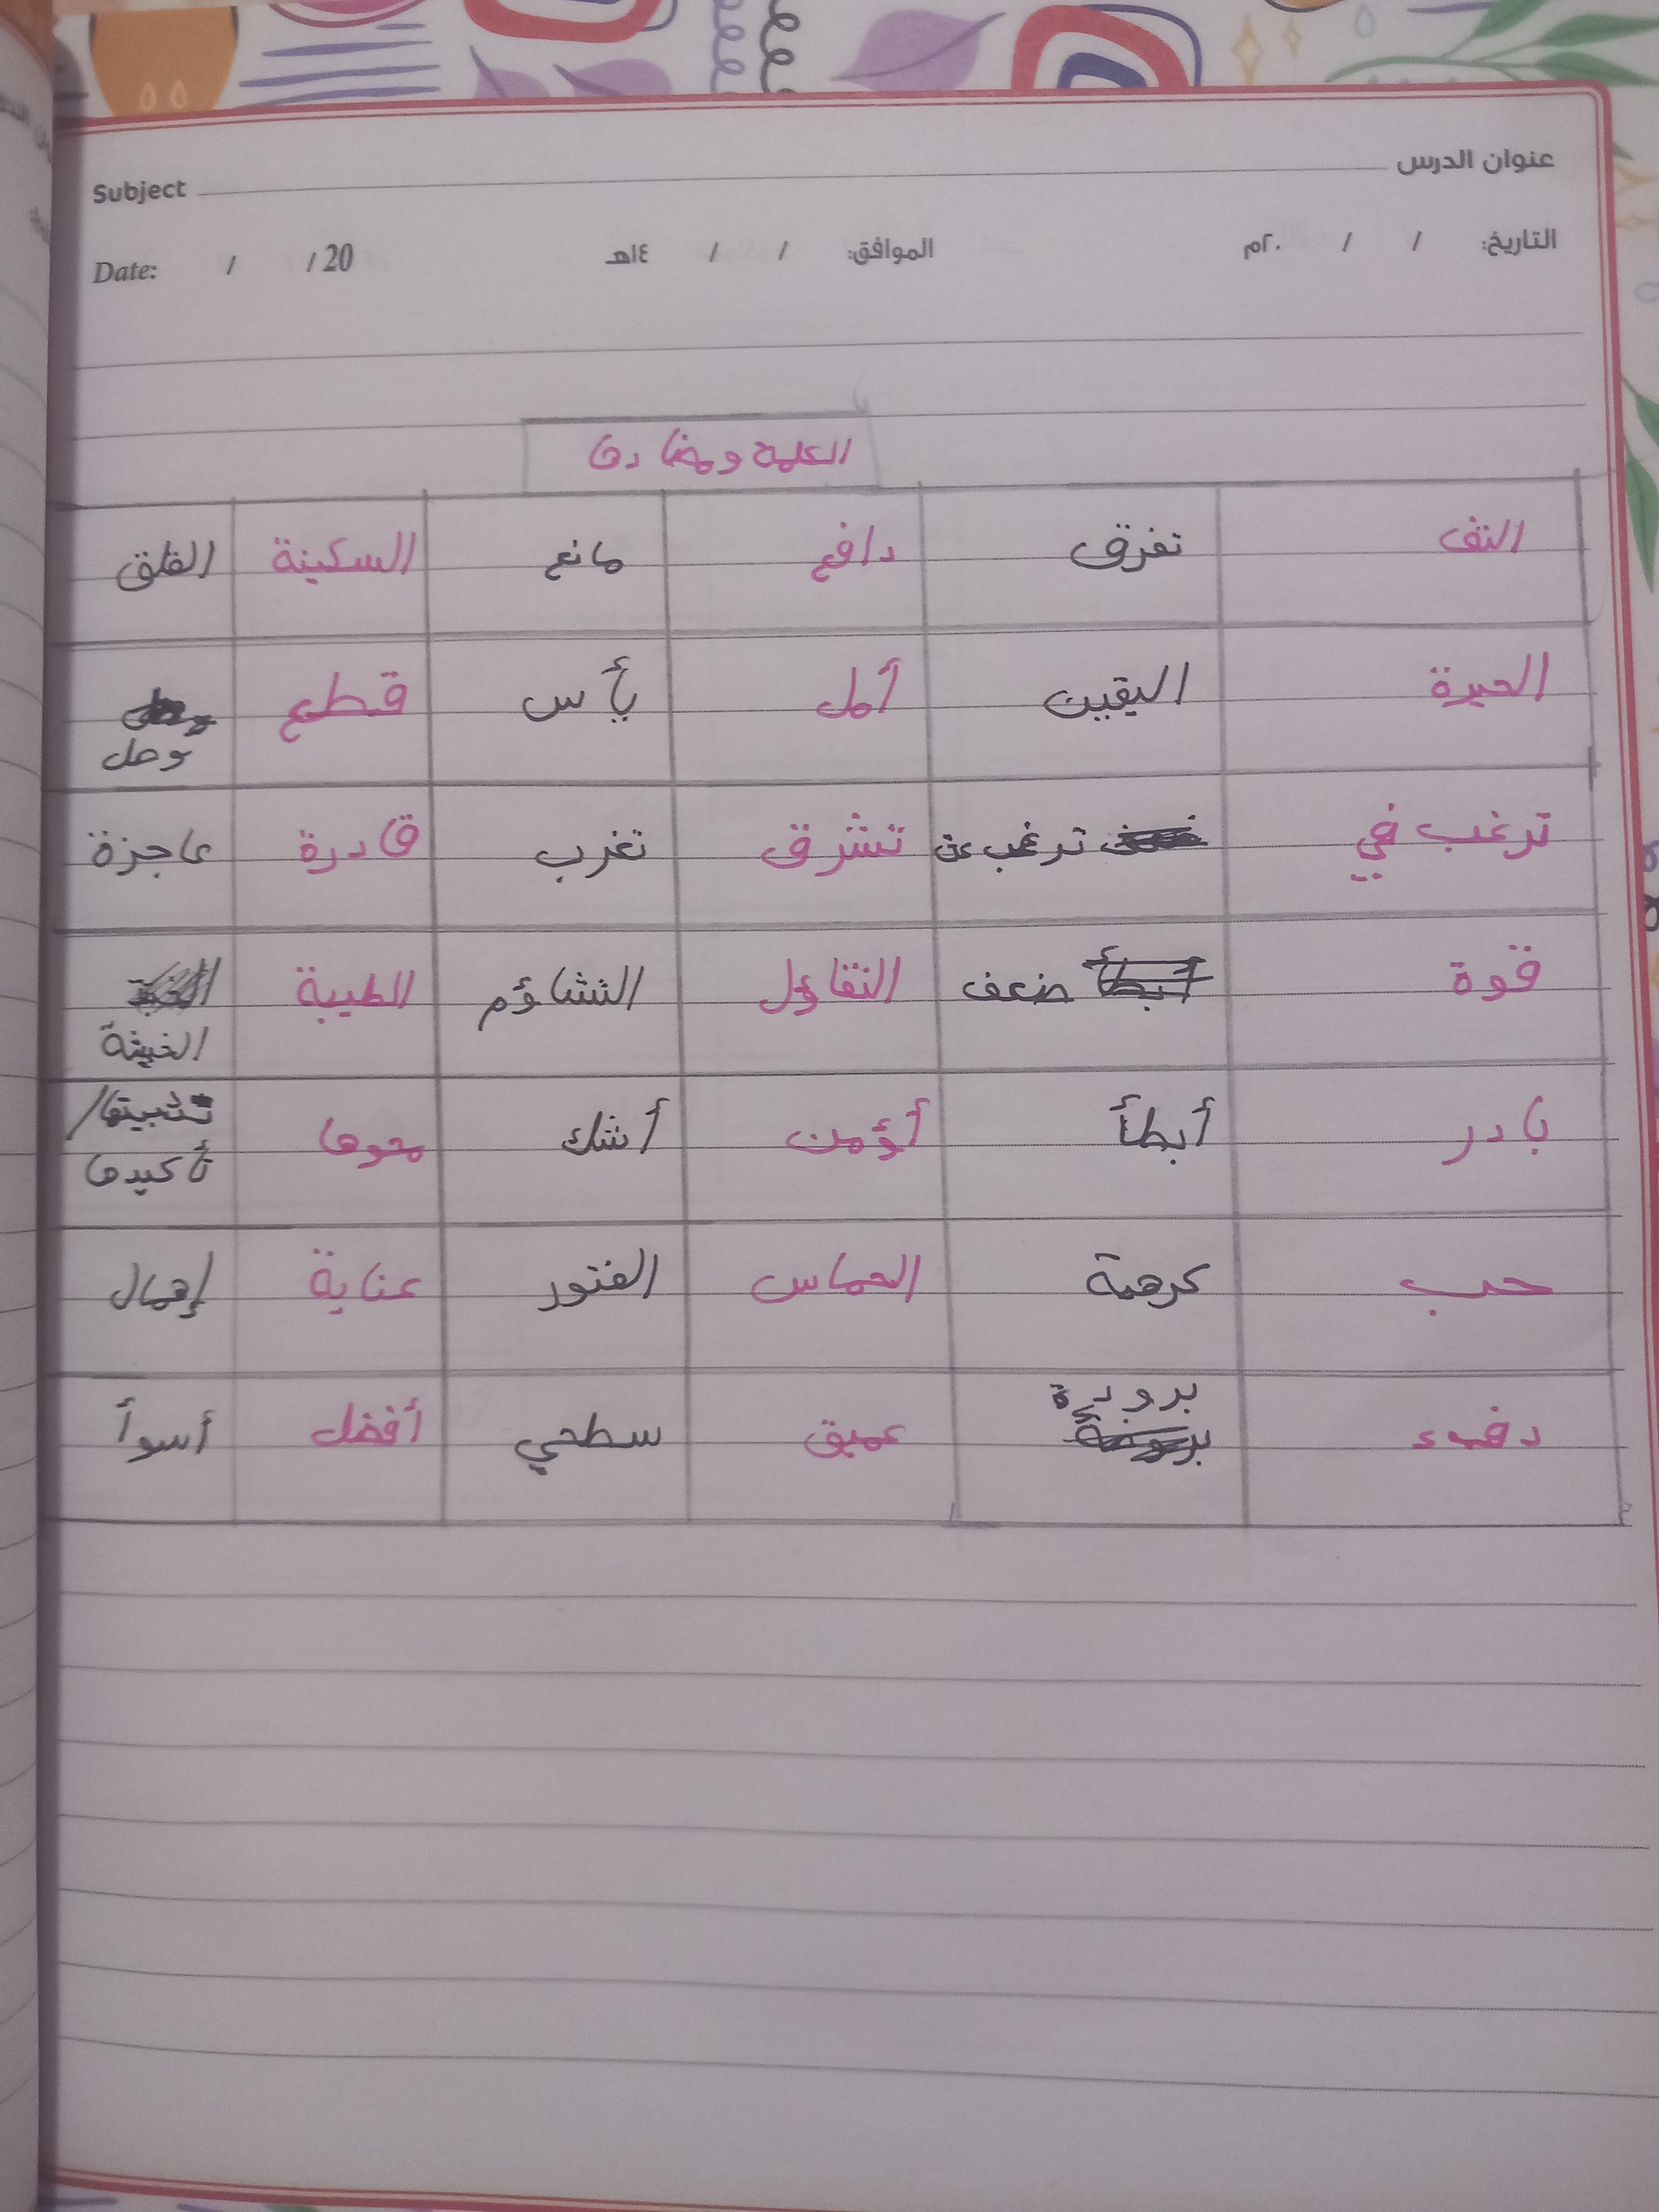 عنوان الدرس Subject
التاريخ: / / ٢٠م الموافق: / / ١٤هـ Date: / / 20
الكلمة ومضادها
التف تفرق دافع مانع السكينة القلق
الحيرة اليقين أمل يأس قطع وصل
ترغب في ترغب عن تشرق تغرب قادرة عاجزة
قوة ضعف التفاؤل التشاؤم الطيبة الخبيثة
بادر أبطأ أؤمن أشك محوها تثبيتها/
تأكيدها
حب كرهية الحماس الفتور عناية إهمال
دفء برودة عميق سطحي أفضل أسوأ